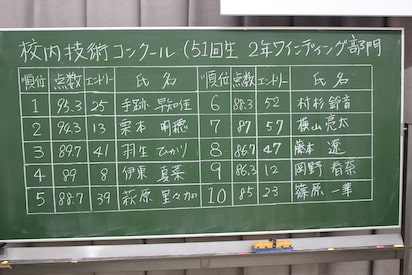 校内技術コンクール (51回生 2年ワインディング部門
順位 点数 エントリー 氏名 順位 点数 エントリー 氏名
1 95.3 25 手跡 早知佳 6 88.3 52 村杉 鈴音
2 94.3 13 栗本 明穂 7 87 57 横山 亮太
3 89.7 41 羽生 ひかり 8 86.7 47 藤本 遼
4 89 8 伊東 夏菜 9 86.3 12 岡野 春奈
5 88.7 39 萩原 里々加 10 85 23 篠原 一華